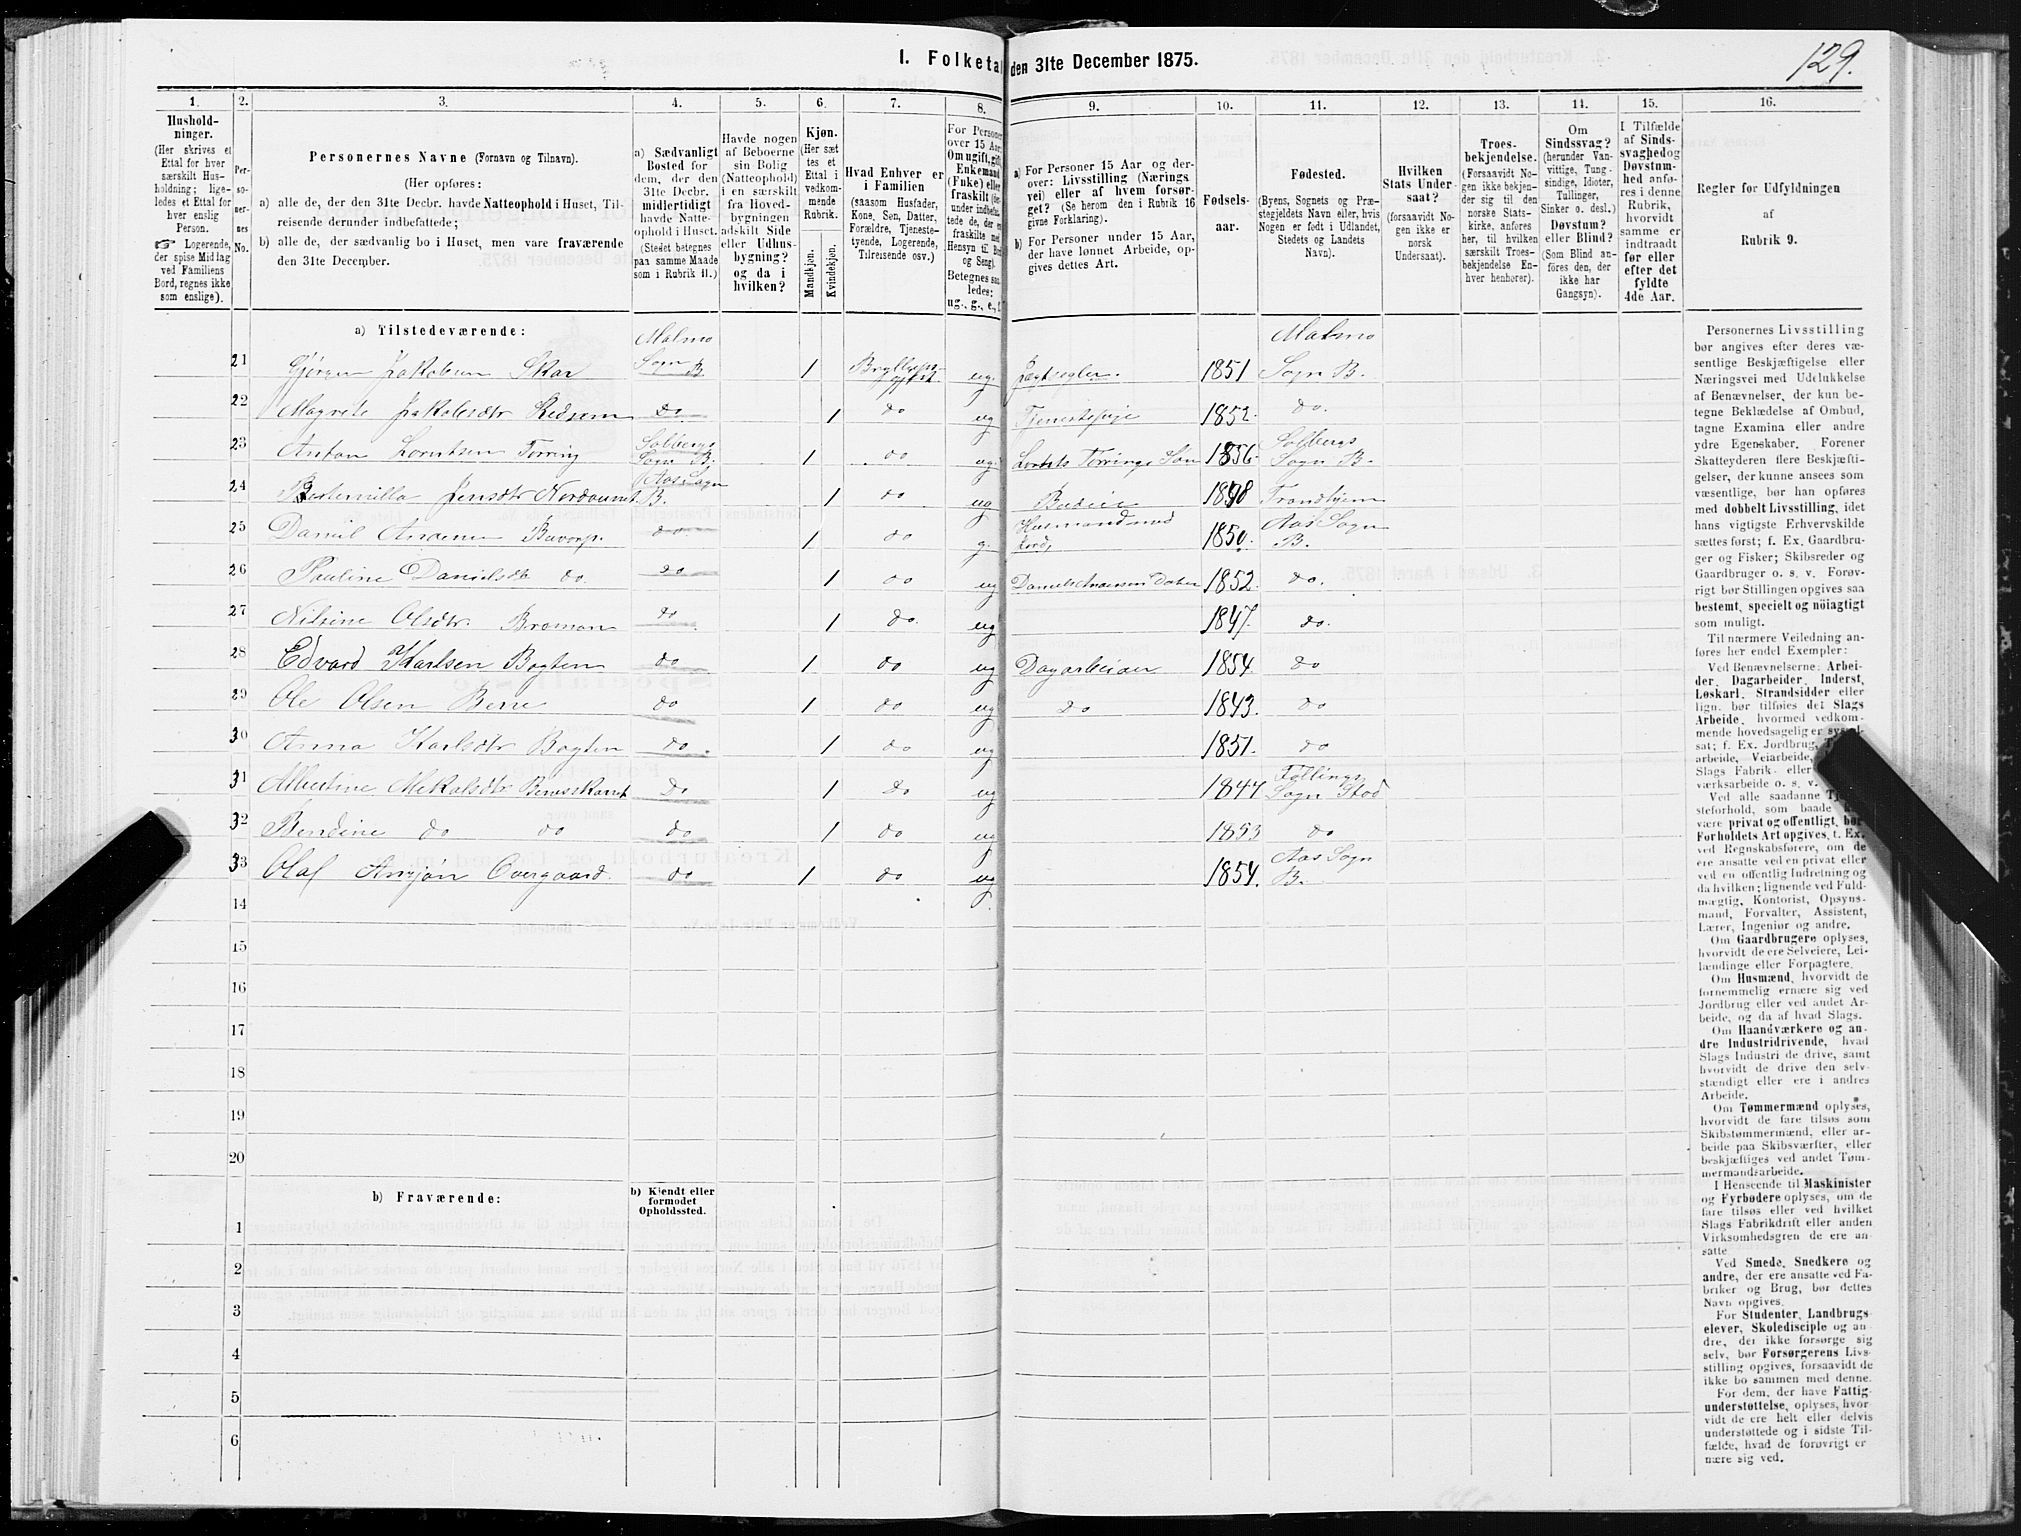 129.
I. Folketal den 31te December 1875.
1. 2. 3. 4. 5. 6. 7. 8. 9. 10. 11. 12. 13. 14. 15. 16.
Hushold-
ninger.
(Her skrives et
Ettal for hver
særskilt Hus-
holdning; lige-
ledes et Ettal for
hver enslig
Person.
☞ Logerende,
der spise Middag
ved Familiens
Bord, regnes ikke
som enslige).
Per-
so-
ner-
nes
No.
Personernes Navne (Fornavn og Tilnavn).
(Her opføres:
a) alle de, der den 31te Decbr. havde Natteophold i Huset, Til-
reisende derunder indbefattede;
b) alle de, der sædvanlig bo i Huset, men vare fraværende
den 31te December.
a) Sædvanligt
Bosted for
dem, der den
31te Decbr.
midlertidigt
havde Natte-
ophold i Huset.
(Stedet betegnes
paa samme Maade
som i Rubrik 11.)
Havde nogen
af Beboerne
sin Bolig
(Natteophold)
i en særskilt
fra Hoved-
bygningen
adskilt Side
eller Udhus-
bygning?
og da i
hvilken?
Kjøn.
(Her sæt
tes et
Ettal i
vedkom-
mende
Rubrik.
Mandkjøn.
Kvindekjøn.
Hvad Enhver er
i Familien
(saasom Husfader,
Kone, Søn, Datter,
Forældre, Tjeneste-
tyende, Logerende,
Tilreisende osv.)
For Personer
over 15 Aar:
Om ugift, gift,
Enkemand
(Enke) eller
fraskilt
og Seng).
Betegnes saa-
ledes:
ug., g., e., f.
a) For Personer 15 Aar og der-
over: Livsstilling (Nærings
vei) eller af hvem forsør-
get? (Se herom den i Rubrik 16
givne Forklaring).
b) For Personer under 15 Aar,
der have lønnet Arbeide, op-
gives dettes Art.
Fødsels-
aar.
Fødested.
(Byens, Sognets og Præ-
stegjeldets Navn eller, hvis
Nogen er født i Udlandet,
Stedets og Landets
Navn).
Hvilken
Stats Under-
saat?
(forsaavidt No-
gen ikke er
norsk
Undersaat).
Troes-
bekjendelse.
(Forsaavidt No-
gen ikke bekjen-
der sig til den
norske Stats-
kirke, anføres
her, til hvilken
særskilt Troes-
bekjendelse En-
hver henhører).
Om
Sindssvag?
(herunder Van-
vittige, Tung-
sindige, Idioter,
Tullinger,
Sinker o. desl.)
Døvstum?
eller Blind?
(Som Blind an-
føres den, der
ikke har
Gangsyn).
I Tilfælde
af Sinds-
svaghed og
Døvstum-
hed anfø-
res i denne
Rubrik,
hvorvidt
samme er
indtraadt
før eller
efter det
fyldte
4de Aar.
Regler for Udfyldningen
af
Rubrik 9.
a) Tilstedeværende:
21 Gjørgen Jakobsen Skar Malmo Sogn B. 1 Bryllupsgjest ug. 1851 Malmo Sogn B.
22 Magrete Jakobsdtr do 1 do ug Tjenestepige 1852 do.
23 Anton Lorntsen Tørring Solbergs Sogn B. 1 do ug. Tørrings Søn 1856 Solbergs Sogn B.
24 Jensdtr Aas Sogn B. 1 do ug Trondhjem
25 Daniel do 1 do g. Husmand med Jord, 1850. Aas Sogn B.
26 Pauline Danielsdtr do. do 1 do ug 1852 do.
27 Nilsine Olsdtr. Broman do 1 do. ug 1847. do.
28 Edvard Karlsen Bogten do 1 do ug Dagarbeider 1854. do
29 Ole Olsen do 1 do ug do 1843. do
30 Anna Karlsdtr Bogten do. 1 do ug 1851. do
31 Albertine Mekalsdtr do 1 do ug 1844 Føllings Sogn Stod
32 Bendine do do do 1 do ug 1853 do
33 Olaf Overgaard. do 1 do ug 1854. Aas Sogn B.
14
15
16
17
18
19
20
b) Fraværende:
b) Kjendt eller
formodet
Opholdssted.
1
2
3
4
5
6
Personernes Livsstilling
bør angives efter deres væ-
sentlige Beskjæftigelse eller
Næringsvei med Udelukkelse
af Benævnelser, der kun be-
tegne Beklædelse af Ombud,
tagne Examina eller andre
ydre Egenskaber. Forener
Skatteyderen flere Beskjæfti-
gelser, der kunne ansees som
væsentlige, bør han opføres
med dobbelt Livsstilling, idet
hans vigtigste Erhvervskilde
sættes først; f. Ex. Gaardbru-
ger og Fisker; Skibsreder og
Gaardbruger o. s. v. Forøv-
rigt bør Stillingen opgives saa
bestemt, specielt og nøiagtigt
som muligt.
Til nærmere Veiledning an-
føres her endel Exempler:
Ved Benævnelserne: Arbei-
der, Dagarbeider, Inderst,
Løskarl, Strandsidder eller
lign. bør tilføies det Slags
Arbeide, hvormed vedkom-
mende hovedsagelig er syssel-
sat; f. Ex. Jordbrug,
arbeide, Veiarbeide,
Slags Fabrik- eller
værksarbeide o. s. v.
Ved alle saadanne
steforhold, som baade
være privat og offentligt, bør
Forholdets Art opgives, t. Ex.
ved Regnskabsførere, om de
ere ansatte ved en privat eller
ved en offentlig Indretning og
da hvilken; lignende ved Fuld-
mægtig, Kontorist, Opsyns-
mand, Forvalter, Assistent,
Lærer, Ingeniør og andre.
Om Gaardbrugere oplyses,
hvorvidt de ere Selveiere, Lei-
lændinge eller Forpagtere.
Om Husmænd, hvorvidt de
fornemmelig ernære sig ved
Jordbrug eller ved andet Ar-
beide, og da af hvad Slags.
Om Haandværkere og an-
dre Industridrivende, hvad
Slags Industri de drive, samt
hvorvidt de drive den selv-
stændigt eller ere i andres
Arbeide.
Om Tømmermænd oplyses,
hvorvidt de fare tilsøs som
Skibstømmermænd, eller ar-
beide paa Skibsværfter, eller
beskjæftiges ved andet Tøm-
mermandsarbeide.
I Henseende til Maskinister
og Fyrbødere oplyses, om de
fare tilsøs eller ved hvilket
Slags Fabrikdrift eller anden
Virksomhedsgren de ere an-
satte
Ved Smede, Snedkere og
andre, der ere ansatte ved Fa-
briker og Brug, bør dettes
Navn opgives.
For Studenter, Landbrugs-
elever, Skoledisciple og an-
dre, der ikke forsørge sig
selv, bør Forsørgerens Livs-
stilling opgives, forsaavidt de
ikke bo sammen med denne.
For dem, der have Fattig-
understøttelse, oplyses, hvor-
vidt de ere helt eller delvis
understøttede og i sidste Til-
fælde, hvad de forøvrigt er
nære sig ved.